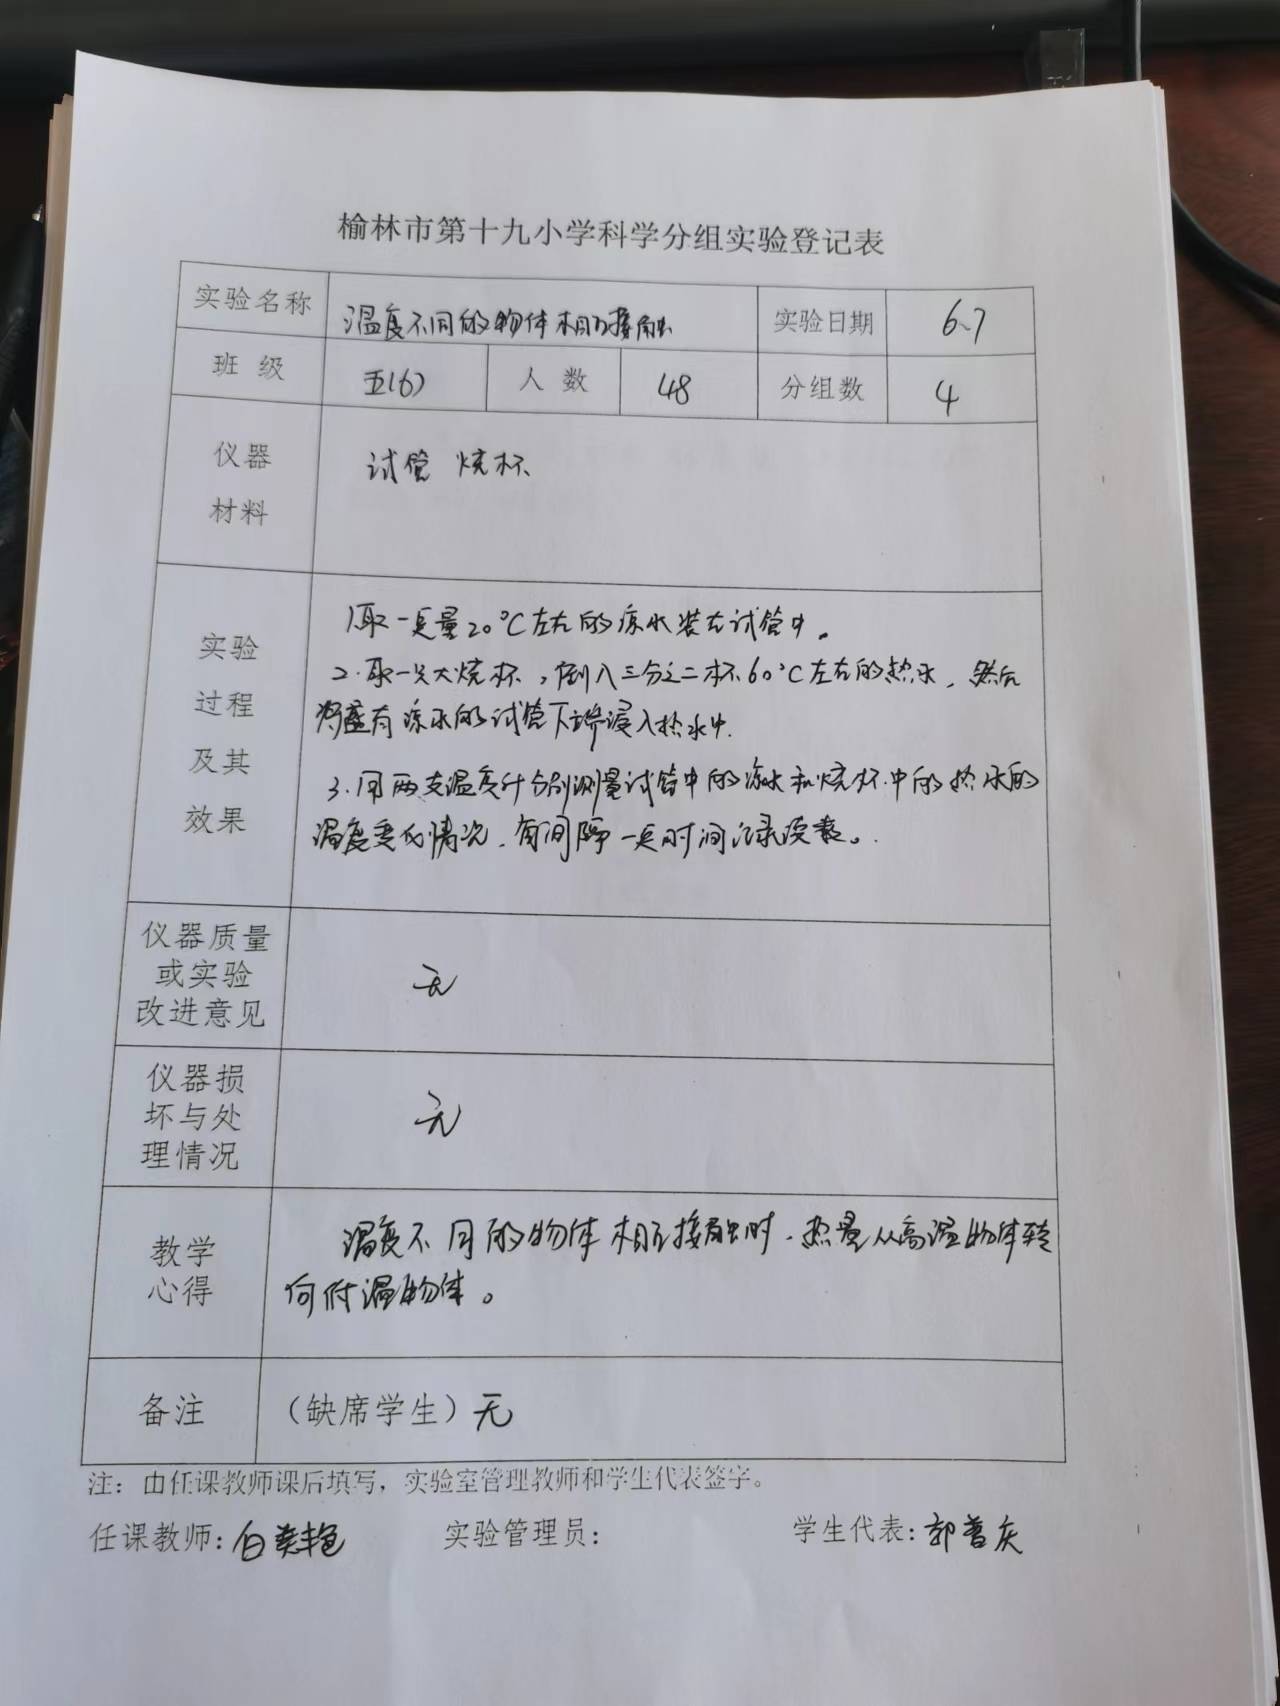 榆林市第十九小学科学分组实验登记表
实验名称 温度不同的物体相互接触 实验日期 6.7
班级 五(6) 人数 48 分组数 4
仪器 试管 烧杯
材料
1.取一定量20℃左右的凉水装在试管中。
实验
2.取一只大烧杯，倒入三分之二杯60℃左右的热水，然后
过程
将盛有凉水的试管下部浸入热水中.
及其
3.用两支温度计分别测量试管中的凉水和烧杯中的热水的
效果
温度变化情况，每间隔一定时间记录读数。
仪器质量
或实验 无
改进意见
仪器损
坏与处 无
理情况
教学 温度不同的物体相互接触时，热量从高温物体转
心得 向低温物体。
备注 （缺席学生）无
注：由任课教师课后填写，实验室管理教师和学生代表签字。
任课教师:白 艳 实验管理员: 学生代表:郭 庆